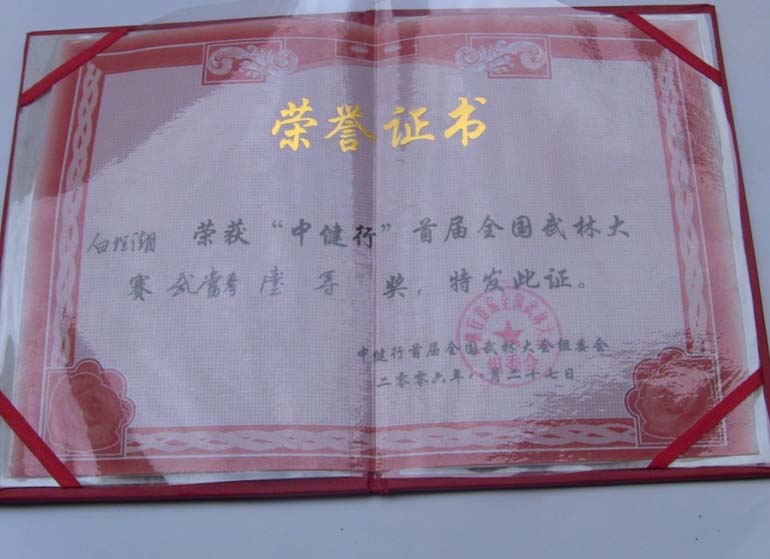 荣誉证书
白 湖 荣获“中健行”首届全国武林大
赛 武当拳 壹 等 奖，特发此证。
中健行首届全国武林大会组委会
二零零六年八月二十七日
健行首届全国武林大
组委会